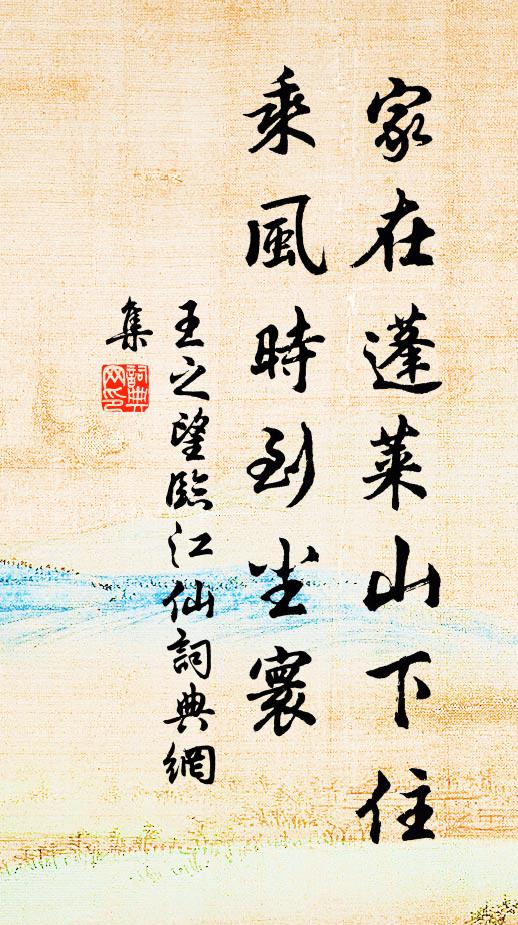 家在蓬萊山下住
乘風時到尘寰
王之望臨江仙詞典網
集
詞典網印